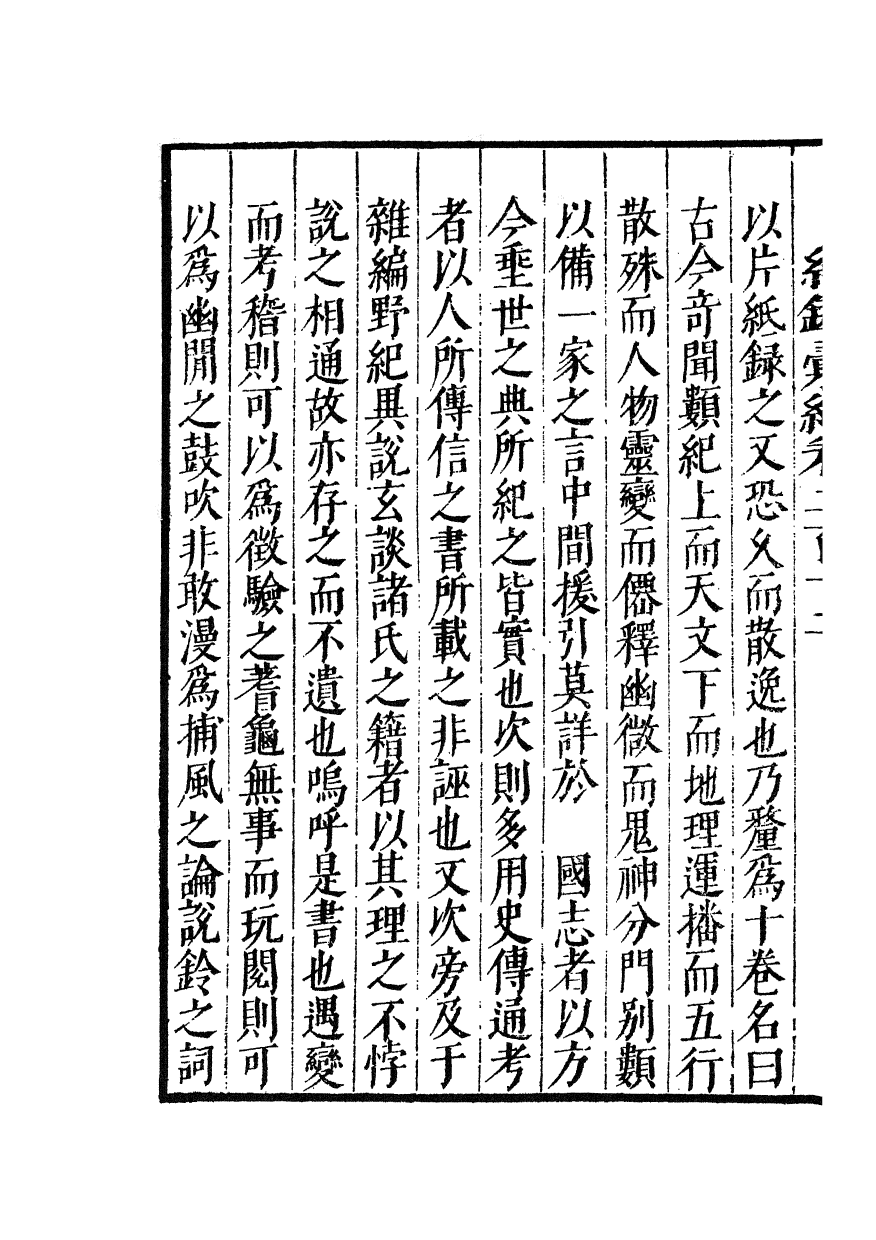 紀錄彙編卷二百十二
以片紙録之又恐久而散逸也乃釐爲十卷名曰
古今奇聞類紀上而天文下而地理運播而五行
散殊而人物靈變而僊釋幽微而鬼神分門别類
以備一家之言中間援引莫詳於　國志者以方
今垂世之典所紀之皆實也次則多用史傳通考
者以人所傳信之書所載之非誣也又次旁及于
雜編野紀異說玄談諸氏之籍者以其理之不悖
說之相通故亦存之而不遺也嗚呼是書也遇變
而考稽則可以爲徵驗之蓍龜無事而玩閱則可
以爲幽閒之鼓吹非敢漫爲捕風之論說鈴之詞